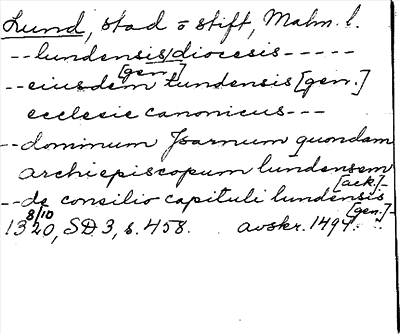 Lund, stad o stift, Malm. l.
-- lundensis/diocesis -----
[gen.]
-- eiusdem lundensis [gen.]
ecclesie canonicus ---
-- dominum Joarnum quondam
archiepiscopum lundensem
[ack.] -
-- de consilio capituli lundensis
[gen.] -
8/10
1320, SD 3, s. 458. avskr. 1494.